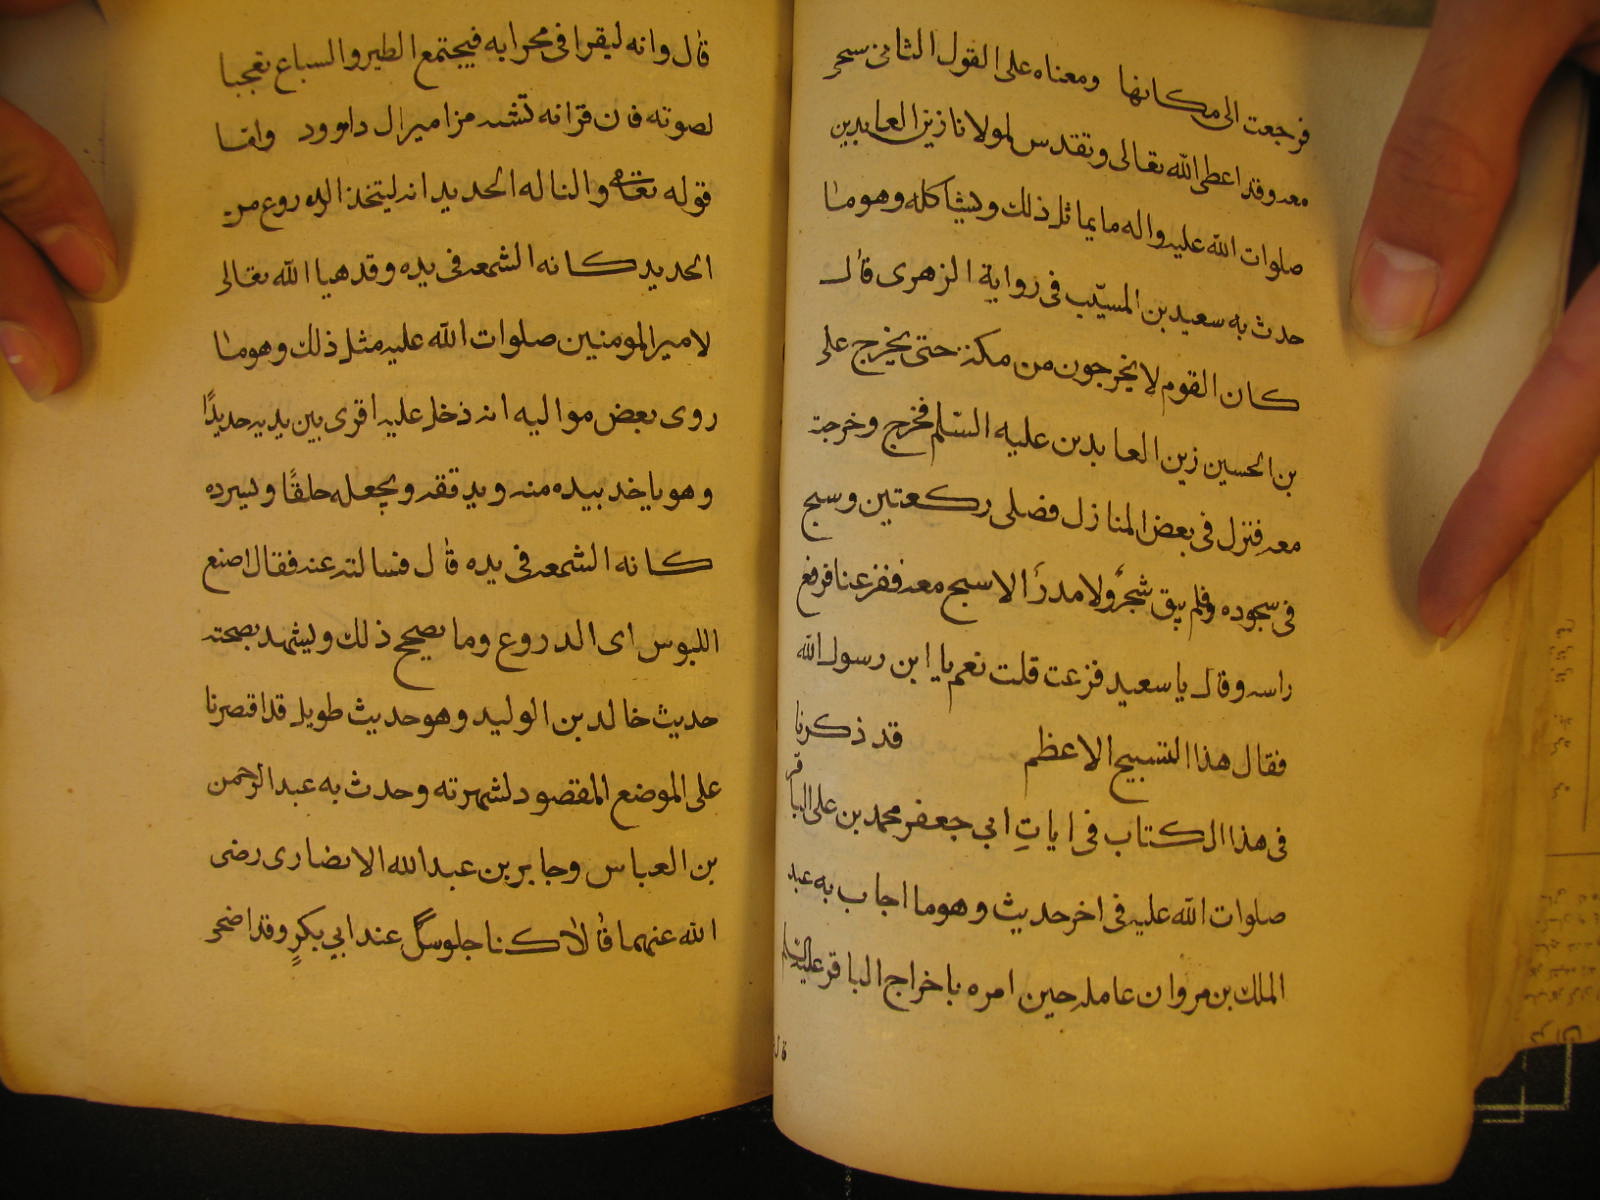 فرجعت الى مكانها ومعناه على القول الثانى سبحى
معه وقد اعطى الله تعالى وتقدس لمولانا زين العابدين
صلوات الله عليه واله ما يماثل ذلك ويشاكله وهو ما
حدث به سعيد بن المسيّب فى رواية الزهرى قال
كان القوم لا يخرجون من مكة حتى يخرج على
بن الحسين زين العابدين عليه السّلم فخرج وخرجت
معه فنزل فى بعض المنازل فصلى ركعتين وسبح
فى سجوده فلم يبق شجرٌ ولا مدرٌ الا سبح معه ففزعنا فرفع
راسه وقال يا سعيد فزعت قلت نعم يا ابن رسول الله
فقال هذا التسبيح الاعظم قد ذكرنا
فى هذا الكتاب فى اياتِ ابى جعفر محمد بن على الباقر
صلوات الله عليه فى اخر حديث وهو ما اجاب به عبد
الملك بن مروان عامله حين امره باخراج الباقر عليه السّلم
قال
قال وانه ليقرا فى محرابه فيجتمع الطير والسباع تعجبا
لصوته فان قرانه تشبه مزامير ال داوود واما
قوله تعالى والنا له الحديد انه ليتخذ الدروع من
الحديد كانه الشمعه فى يده وقد هيا الله تعالى
لامير المومنين صلوات الله عليه مثل ذلك وهو ما
روى بعض مواليه انه دخل عليه اقرى بين يديه حديدًا
وهو ياخد بيده منه ويدققه ويجعله حلقًا ويسرده
كانه الشمعه فى يده قال فسالته عنه فقال اصنع
اللبوس اى الدروع وما يصحح ذلك ويشهد بصحته
حديث خالد بن الوليد وهو حديث طويل قد اقتصرنا
على الموضع المقصود لشهرته وحدث به عبد الرحمن
بن العباس وجابر بن عبد الله الانصارى رضى
الله عنهما قالا كنا جلوسٌ عند ابي بكرٍ وقد اضحى